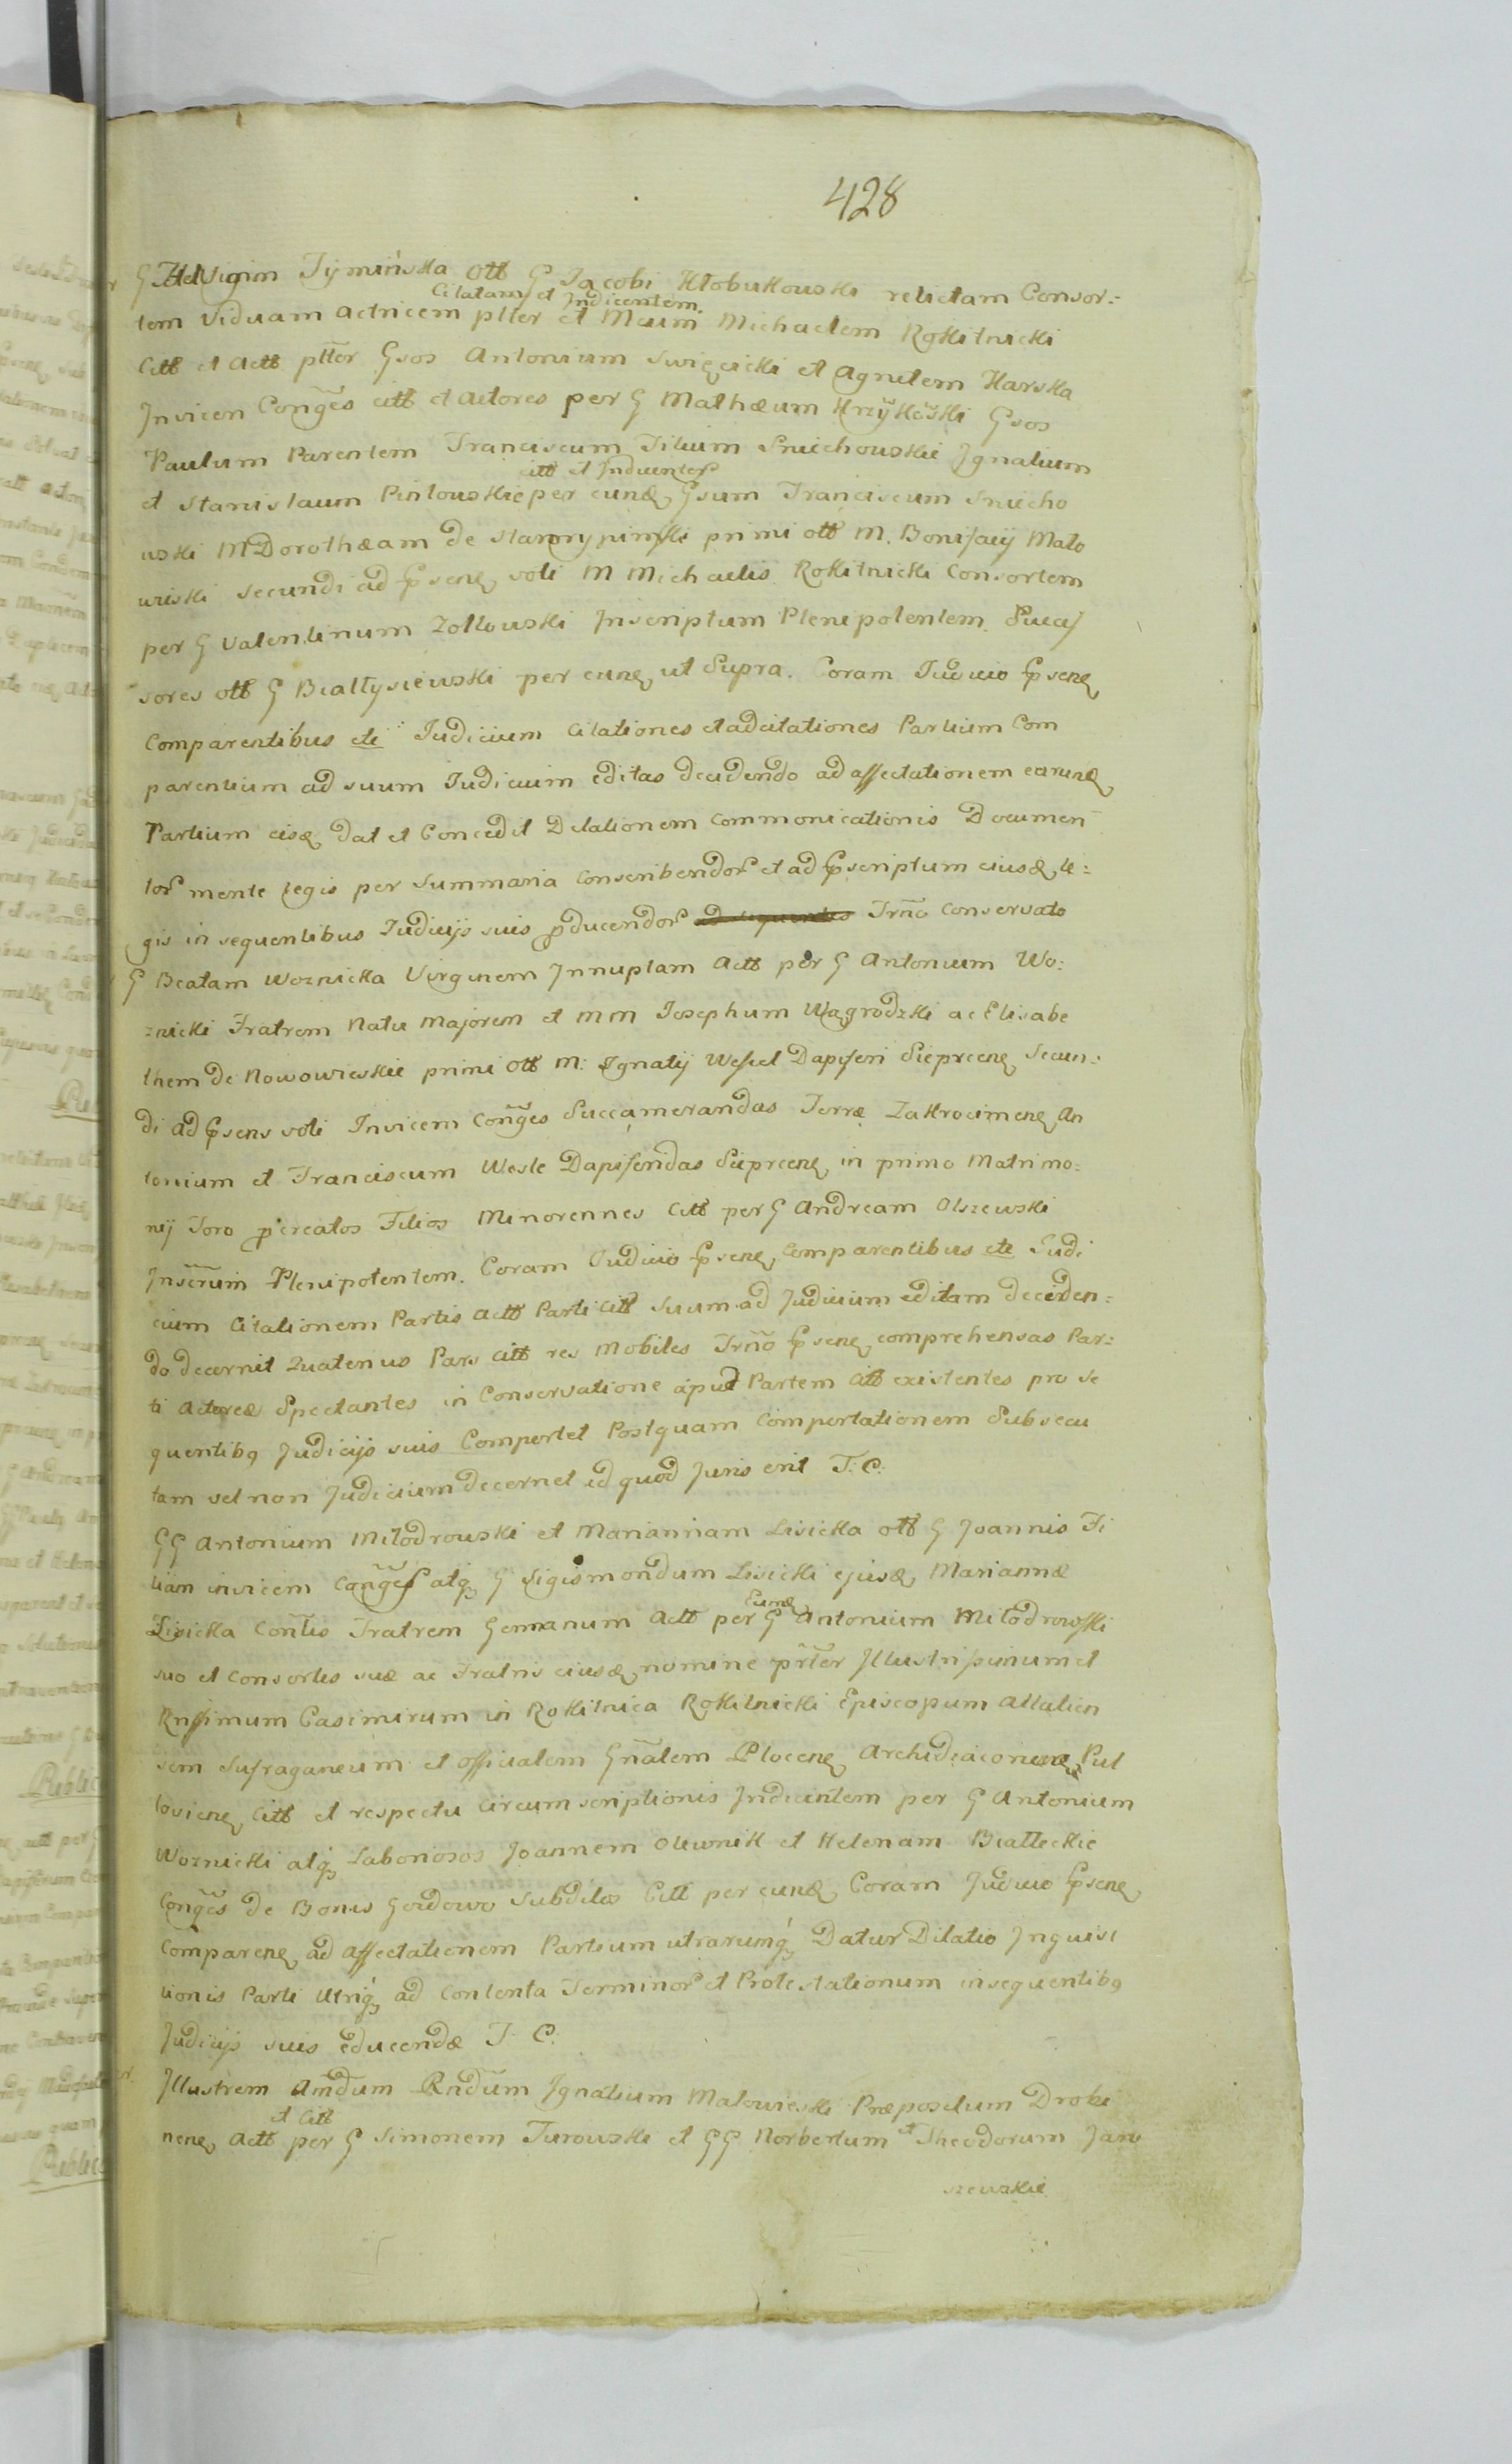 428
G Hedvigim Tymińska ott G Jacobi Kłobukowski relictam Consor:
Citatam et Indicentem
tem Viduam actricem ptter et Mcum Michaelem Rokitnicki
Citt et Actt ptter Gsos Antonium Swięcicki et Agnetem Karska
Invicem Conges citt et Actores per G Mathæum Krzykoski Gsos
Paulum Parentem Franciscum Filium Sniechouskie Ignatium
citt et
et Stanislaum Pintouskie per eund Gsum Franciscum Sniecho
uski M Dorothæam de primi ott M. Bonifacij Malo
wieski secundi ad Psens voti M Michaelis Rokitnicki Consortem
per G Valentinum Zołtowski Inscriptum Plenipotentem. Succes
sores ott G Białłysiewski per eund ut Supra. Coram Judicio Psens
Comparentibus etc Judicium Citationes et adcitationes Partium Com
parentium ad suum Judicium editas decidendo ad affectationem earund
Partium eisd dat et Concedit Dilationem Commonicationis Documen
tor mente legis per Summaria Conscribendor et ad Pscriptum eiusd le:
gis in sequentibus Judicijs suis pducendor Trno Conservato
G Beatam Woznicka Virginem Innuptam Actt per G Antonium Wo:
znicki Fratrem Natu Majorem et MM Josephum Wągrodzki ac Elisabe
them de Nowowieskie primi ott M: Ignatij Wessel Dapiferi Sieprcens Secun:
di ad Psens voti Invicem Conges Succamerandas Terræ Zakrocimens An
tonium et Franciscum Wesle Dapiferidas Sieprcens in primo Matrimo:
nij Toro pcreatos Filios Minorennes Citt per G Andream Olszewski
Inscrum Plenipotentem. Coram Judicio Psens Comparentibus etc Judi
cium Citationem Partis Actt Parti Citt Suum ad Judicium editam deciden:
do decernit Quatenus Pars Citt res Mobiles Trno Psens comprehensas Par:
ti Actoreæ Spectantes in Conservatione apud Partem Citt existentes pro se
quentibq Judicijs suis Comportet Postquam Comportationem Subsecu
tam vel non Judicium decernet id quod Juris erit T: C:
GG Antonium Miłodrouski et Mariannam Lisicka ott G Joannis Fi
liam invicem Conges atq G Sigismondum Lisicki ejusd Mariannæ
Eund
Lisicka Contis Fratrem Germanum Actt per G Antonium Miłodrowski
suo et Consortis suæ ac Fratris eiusd nomine ptter Illustrissimum et
Rnssimum Casimirum in Rokitnica Rokitnicki Episcopum Attalien
sem Sufraganeum et officialem Gnalem Plocens Archidiaconum Pul
tosiens Citt et respectu circumscriptionis Indicentem per G Antonium
Woznicki atq Laboriosos Joannem Olewnik et Helenam Białeckie
Conges de Bonis Gordowo Subditos Citt per eund Coram Judicio Psens
Comparens ad affectationem Partium utrarumq Datur Dilatio Inquisi
tionis Parti Utriq ad Contenta Terminor et Protestationum in sequentibq
Judicijs suis educendæ T: C:
Illustrem Amdum Rndum Ignatium Malowieski Præpositum Drobi
et Citt
nens Actt per G Simonem Turowski et GG Norbertum et Theodorum Jaro
szewskie